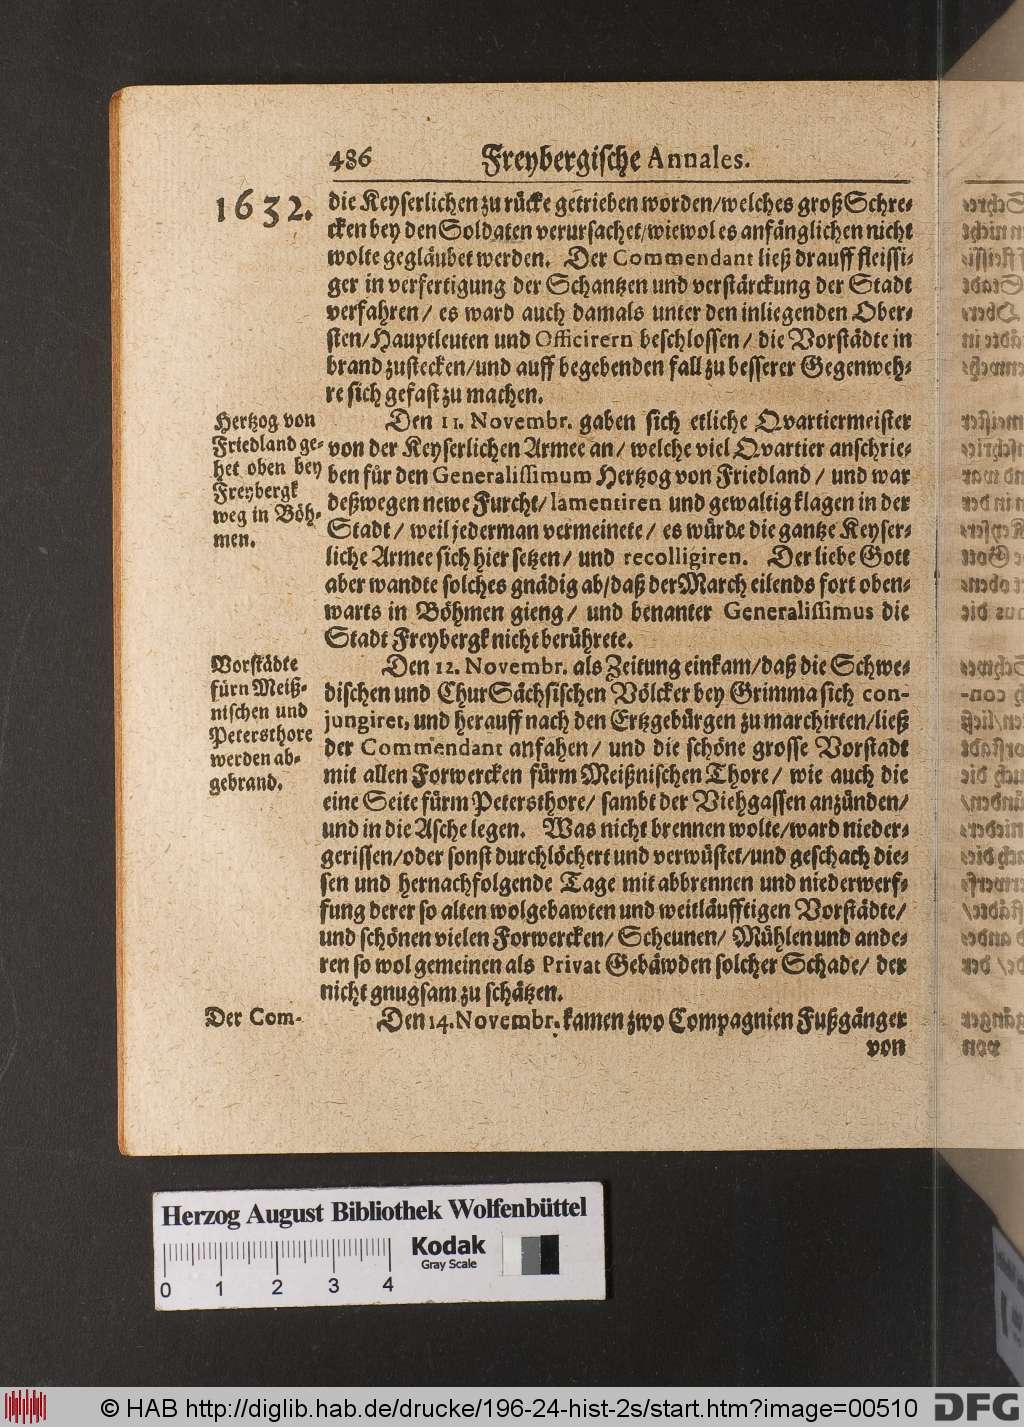 486 Freybergische Annales.
1632.
die Keyserlichen zu rücke getrieben worden/welches groß Schre-
cken bey den Soldaten verursachet/wiewol es anfänglichen nicht
wolte gegläubet werden. Der Commendant ließ drauff fleissi-
ger in verfertigung der Schantzen und verstärckung der Stadt
verfahren/ es ward auch damals unter den inliegenden Ober-
sten/Hauptleuten und Officirern beschlossen/ die Vorstädte in
brand zustecken/und auff begebenden fall zu besserer Gegenweh-
re sich gefast zu machen.
Hertzog von
Friedland ge-
het oben bey
Freybergk
weg in Böh-
men.
Den 11. Novembr. gaben sich etliche Qvartiermeister
von der Keyserlichen Armee an/ welche viel Qvartier anschrie-
ben für den Generalissimum Hertzog von Friedland/ und war
deßwegen newe Furcht/lamentiren und gewaltig klagen in der
Stadt/ weil jederman vermeinete/ es würde die gantze Keyser-
liche Armee sich hier setzen/ und recolligiren. Der liebe Gott
aber wandte solches gnädig ab/daß der March eilends fort oben-
warts in Böhmen gieng/ und benanter Generalissimus die
Stadt Freybergk nicht berührete.
Vorstädte
fürn Meiß-
nischen und
Petersthore
werden ab-
gebrand.
Den 12. Novembr. als Zeitung einkam/daß die Schwe-
dischen und ChurSächsischen Völcker bey Grimma sich con-
jungiret, und herauff nach den Ertzgebürgen zu marchirten/ließ
der Commendant anfahen/ und die schöne grosse Vorstadt
mit allen Forwercken fürm Meißnischen Thore/ wie auch die
eine Seite fürm Petersthore/ sambt der Viehgassen anzünden/
und in die Asche legen. Was nicht brennen wolte/ward nieder-
gerissen/oder sonst durchlöchert und verwüstet/und geschach die-
sen und hernachfolgende Tage mit abbrennen und niederwerf-
fung derer so alten wolgebawten und weitläufftigen Vorstädte/
und schönen vielen Forwercken/ Scheunen/ Mühlen und ande-
ren so wol gemeinen als Privat Gebäwden solcher Schade/ der
nicht gnugsam zu schätzen.
Der Com-
Den 14. Novembr. kamen zwo Compagnien Fußgänger
von
Herzog August Bibliothek Wolfenbüttel
Kodak
Gray Scale
0 1 2 3 4
© HAB http://diglib.hab.de/drucke/196-24-hist-2s/start.htm?image=00510
DFG